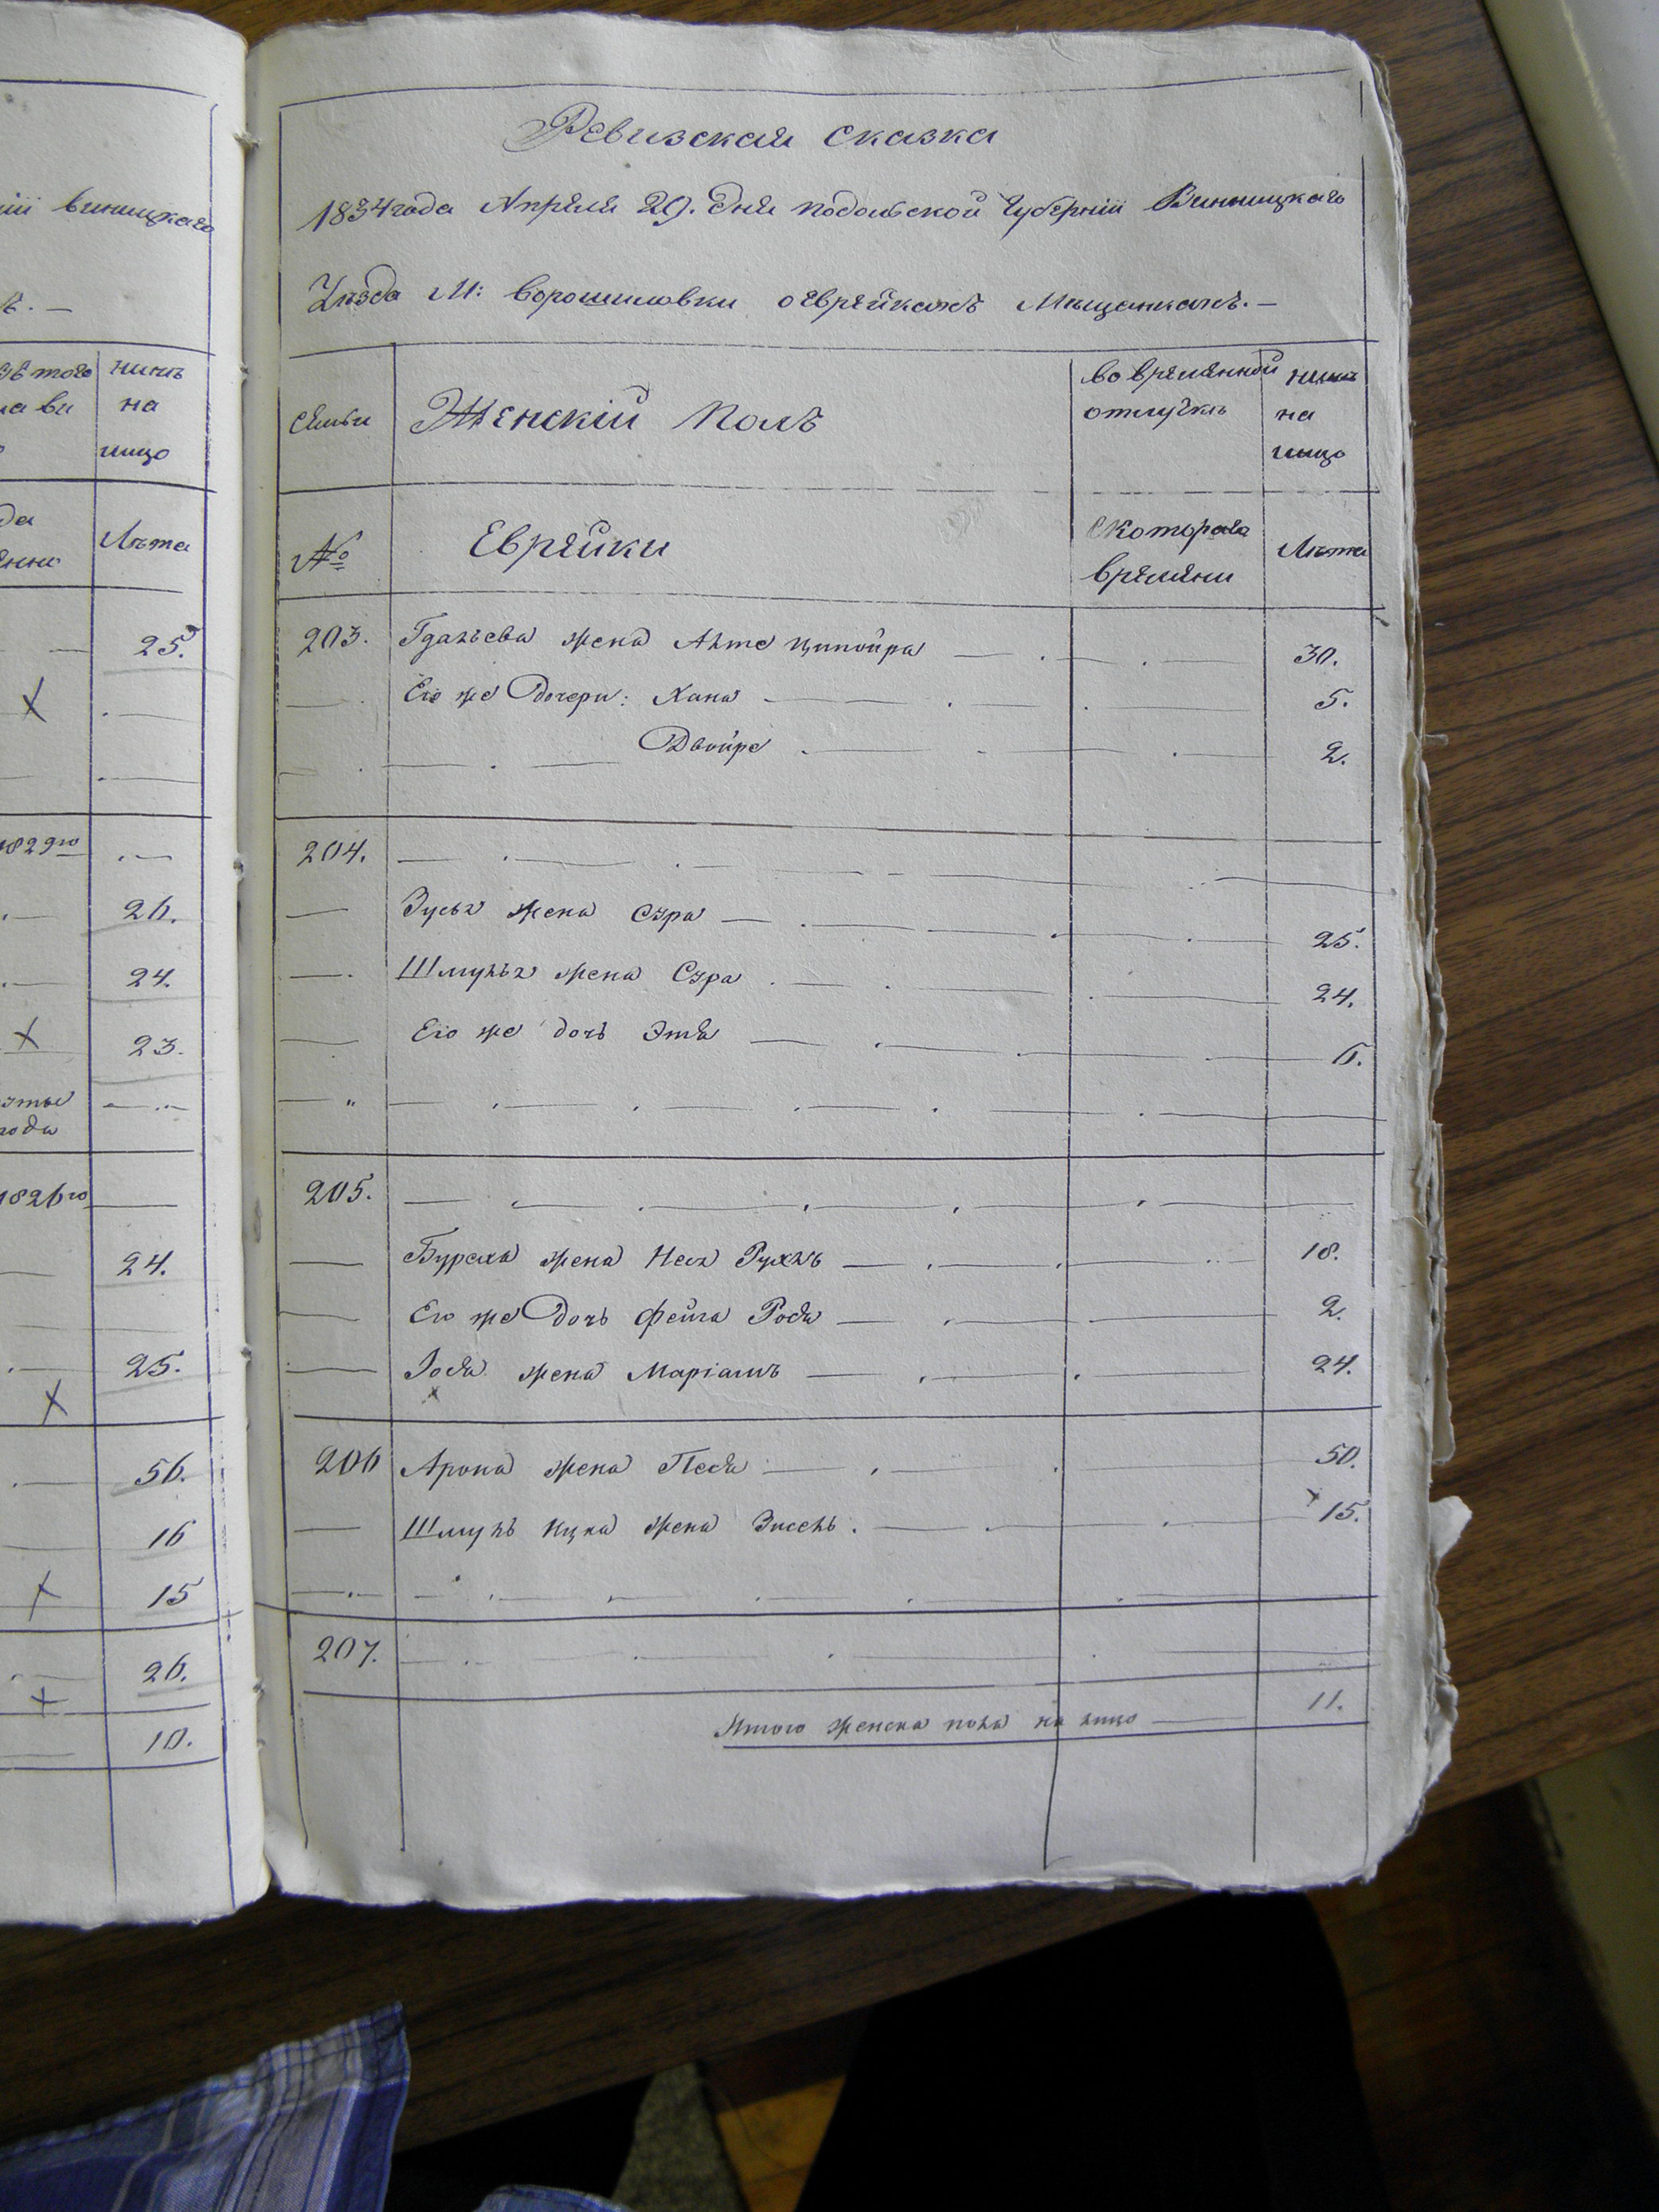 ніи виницкаго
ѣ. —
нинѣ
на
лицо
Лѣта
25.
1829го
26.
24.
23.
года
1826го
24.
25.
56.
16
15
26.
10.
Ревизская сказка
1834 года Апреля 29. дня подольской губерніи Винницкаго
Уѣзда М: Ворошиловки оеврейкахъ Мещанкахъ. —
семьи
Женскій полъ
во временной отлучкѣ
нинѣ на лицо
№
Еврейки
скотораго времени
Лѣта
203. Гдальева жена Айте Ципойра 30.
Его же Дочери: Хана 5.
Двойре 2.
204.
Зуся жена Сура 25.
Шмуля жена Сура 24.
Его же дочь Этя 6.
205.
Бураха жена Неся Рухль 18.
Его же Дочь Фейга Рося 2.
Зося жена Маріамъ 24.
206 Арона жена Песя 50.
Шмуль Ицка жена Энсель. 15.
207.
Итого женска пола на лицо 11.